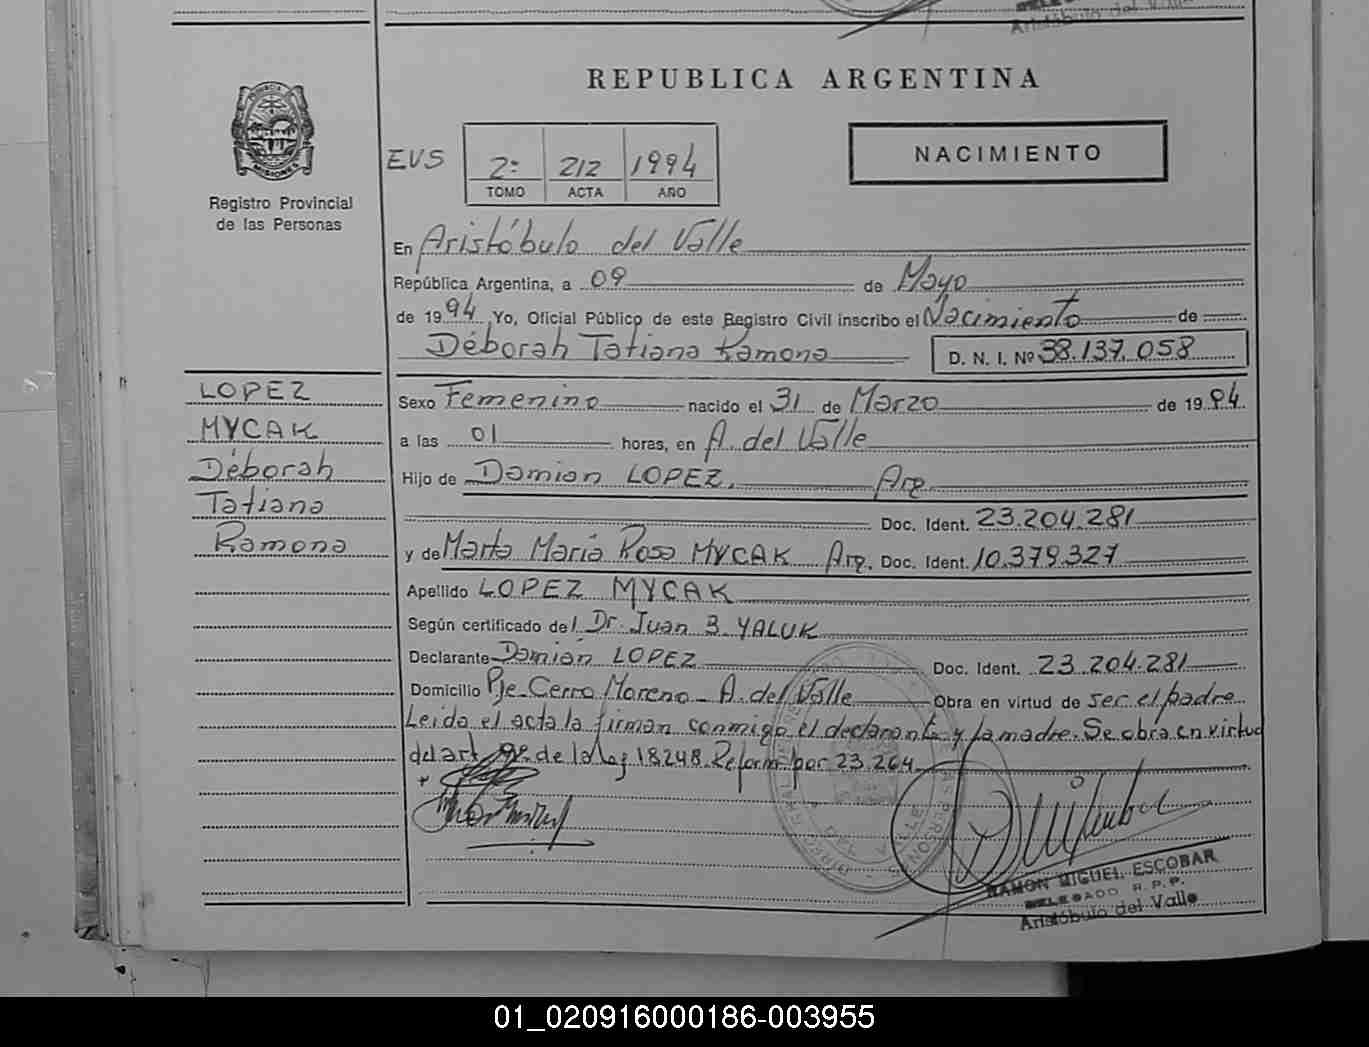 Aristóbulo del Valle
REPUBLICA ARGENTINA
PROVINCIA DE
MISIONES
Registro Provincial
de las Personas
EVS
2º 212 1994
TOMO ACTA AÑO
NACIMIENTO
En Aristóbulo del Valle
República Argentina, a 09 de Mayo
de 1994 Yo, Oficial Público de este Registro Civil inscribo el Nacimiento de
Déborah Tatiana Ramona D. N. I. Nº 38.137.058
LOPEZ
MYCAK
Déborah
Tatiana
Ramona
Sexo Femenino nacido el 31 de Marzo de 1994
a las 01 horas, en A. del Valle
Hijo de Damian LOPEZ, Arg.
Doc. Ident. 23.204.281
y de Marta María Rosa MYCAK Arg. Doc. Ident. 10.379.327
Apellido LOPEZ MYCAK
Según certificado del Dr. Juan B. YALUK
Declarante Damián LOPEZ Doc. Ident. 23.204.281
Domicilio Pje Cerro Moreno - A. del Valle Obra en virtud de ser el padre
Leída el acta la firman conmigo el declarante y la madre. Se obra en virtud
del art 9º de la ley 18248. Reform. por 23.264
RAMON MIGUEL ESCOBAR
DELEGADO R. P. P.
Aristóbulo del Valle
01_020916000186-003955